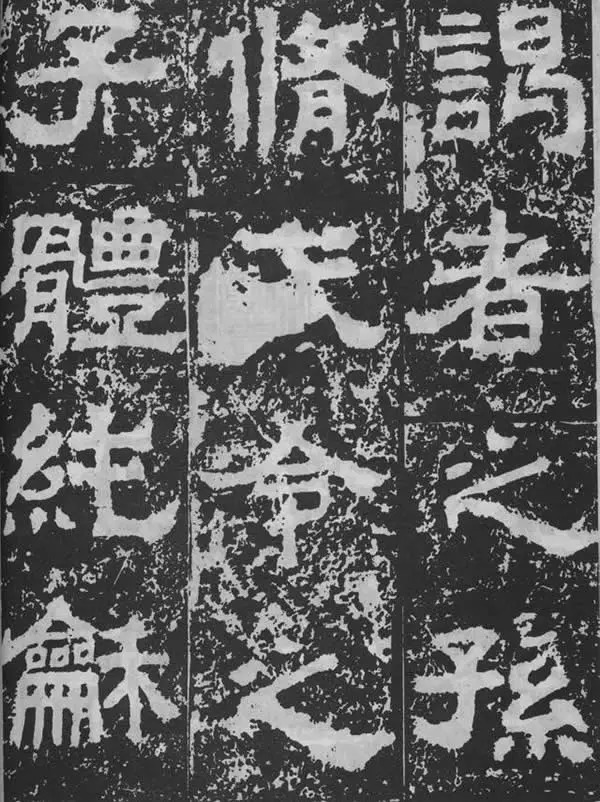 謁者之孫
脩令之
子體純龢